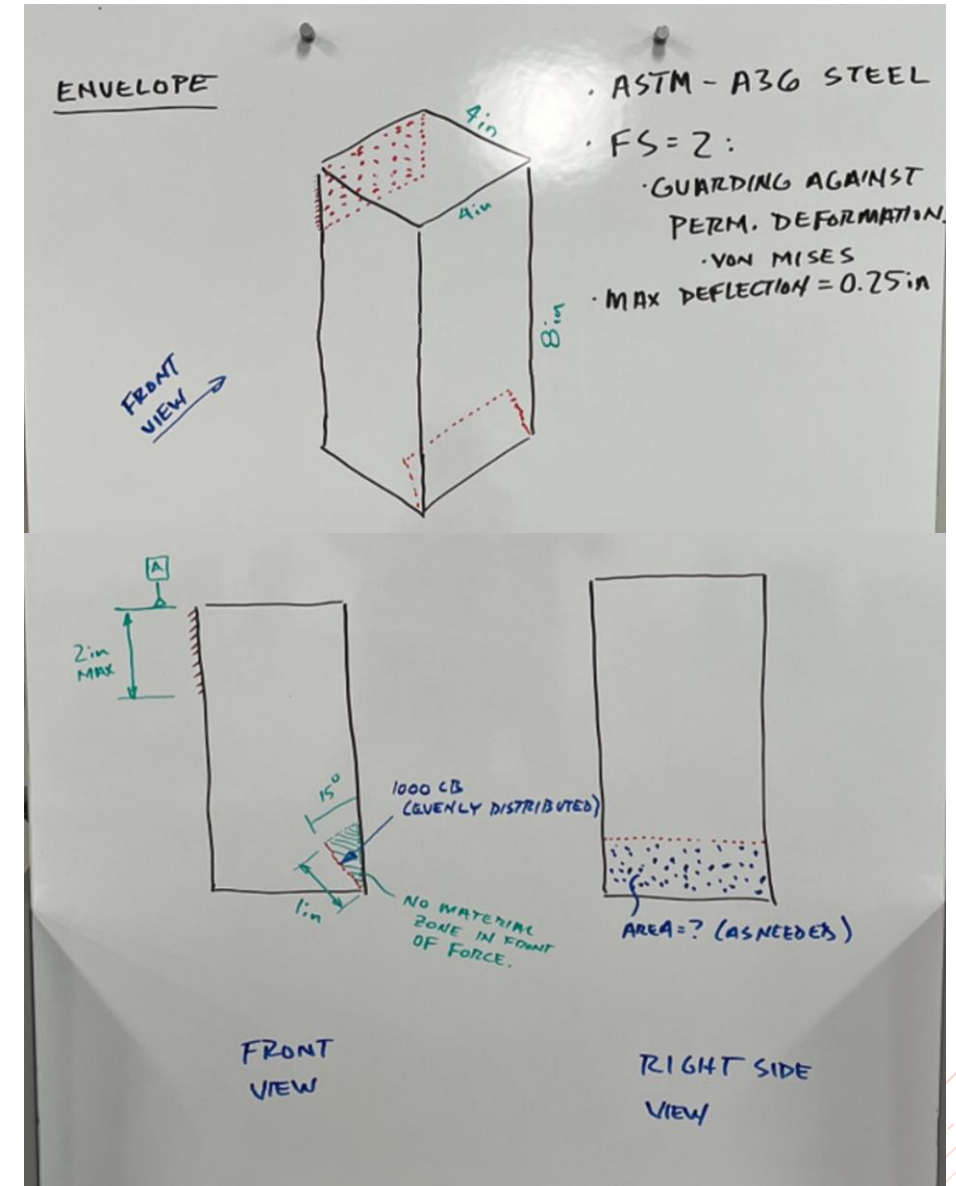 ENVELOPE
4in
4in
8in
FRONT
VIEW
· ASTM - A36 STEEL
· FS = 2 :
· GUARDING AGAINST
PERM. DEFORMATION.
· VON MISES
· MAX DEFLECTION = 0.25in
A
2in
MAX
15°
1000 LB
(EVENLY DISTRIBUTED)
1in
NO MATERIAL
ZONE IN FRONT
OF FORCE.
AREA = ? (AS NEEDED)
FRONT
VIEW
RIGHT SIDE
VIEW